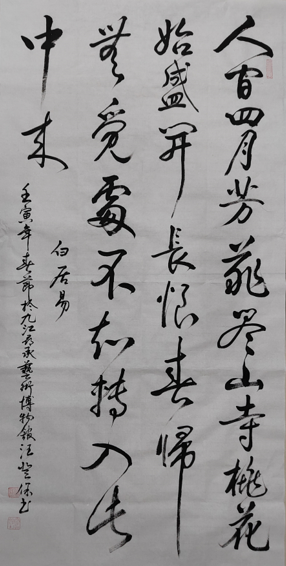 人間四月芳菲盡山寺桃花
始盛開長恨春歸
無覓處不知轉入此
中來
白居易
壬寅年春節於九江市承藝術博物館汪登保書